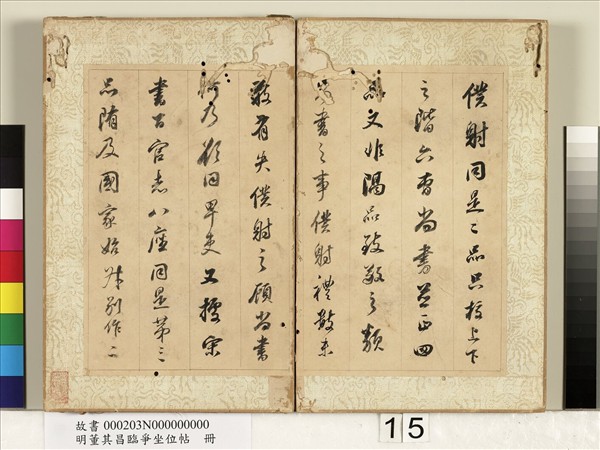 僕射同是二品只校上下
之階六曹尚書並正四
品又非隔品致敬之類
尚書之事僕射禮數未
敢有失僕射之顧尚書
何乃欲同卑吏又據宋
書百官志八座同是第三
品隋及國家始升別作二
故書 000203N000000000
明董其昌臨爭坐位帖 冊
15